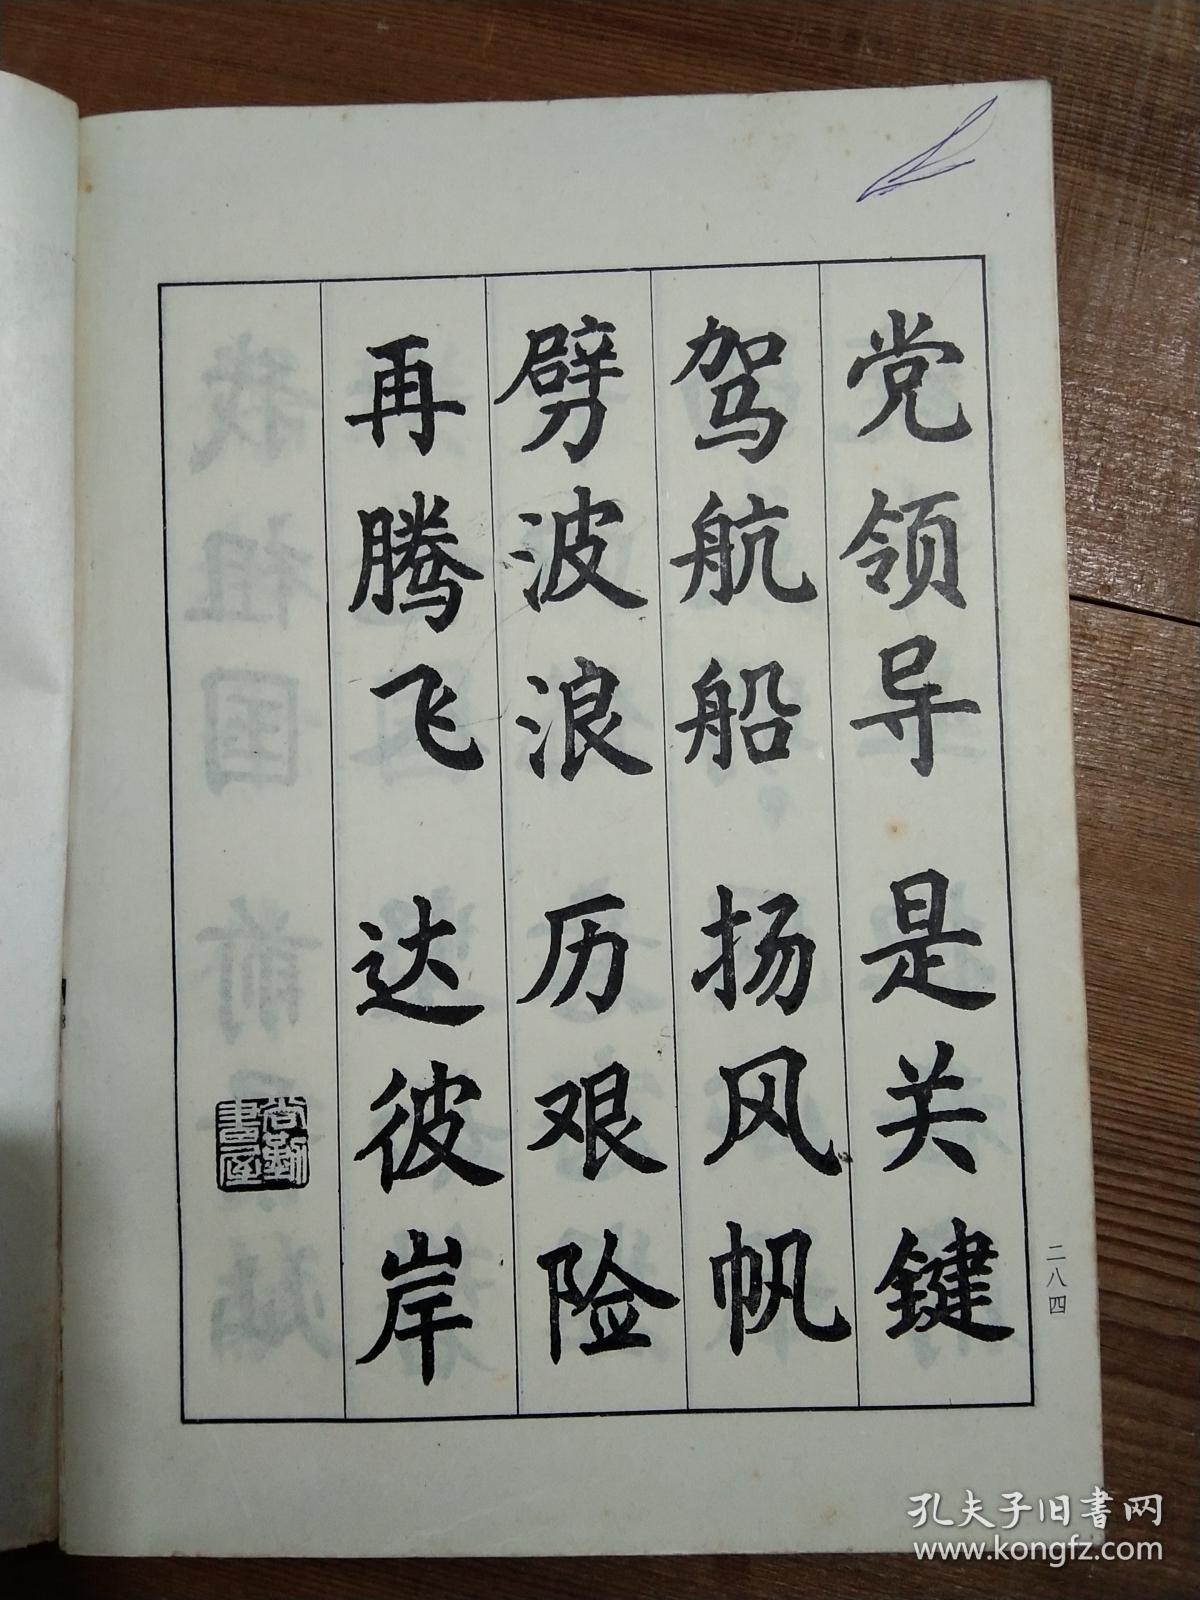 党领导 是关键
驾航船 扬风帆
劈波浪 历艰险
再腾飞 达彼岸
二八四
孔夫子旧書网
www.kongfz.com